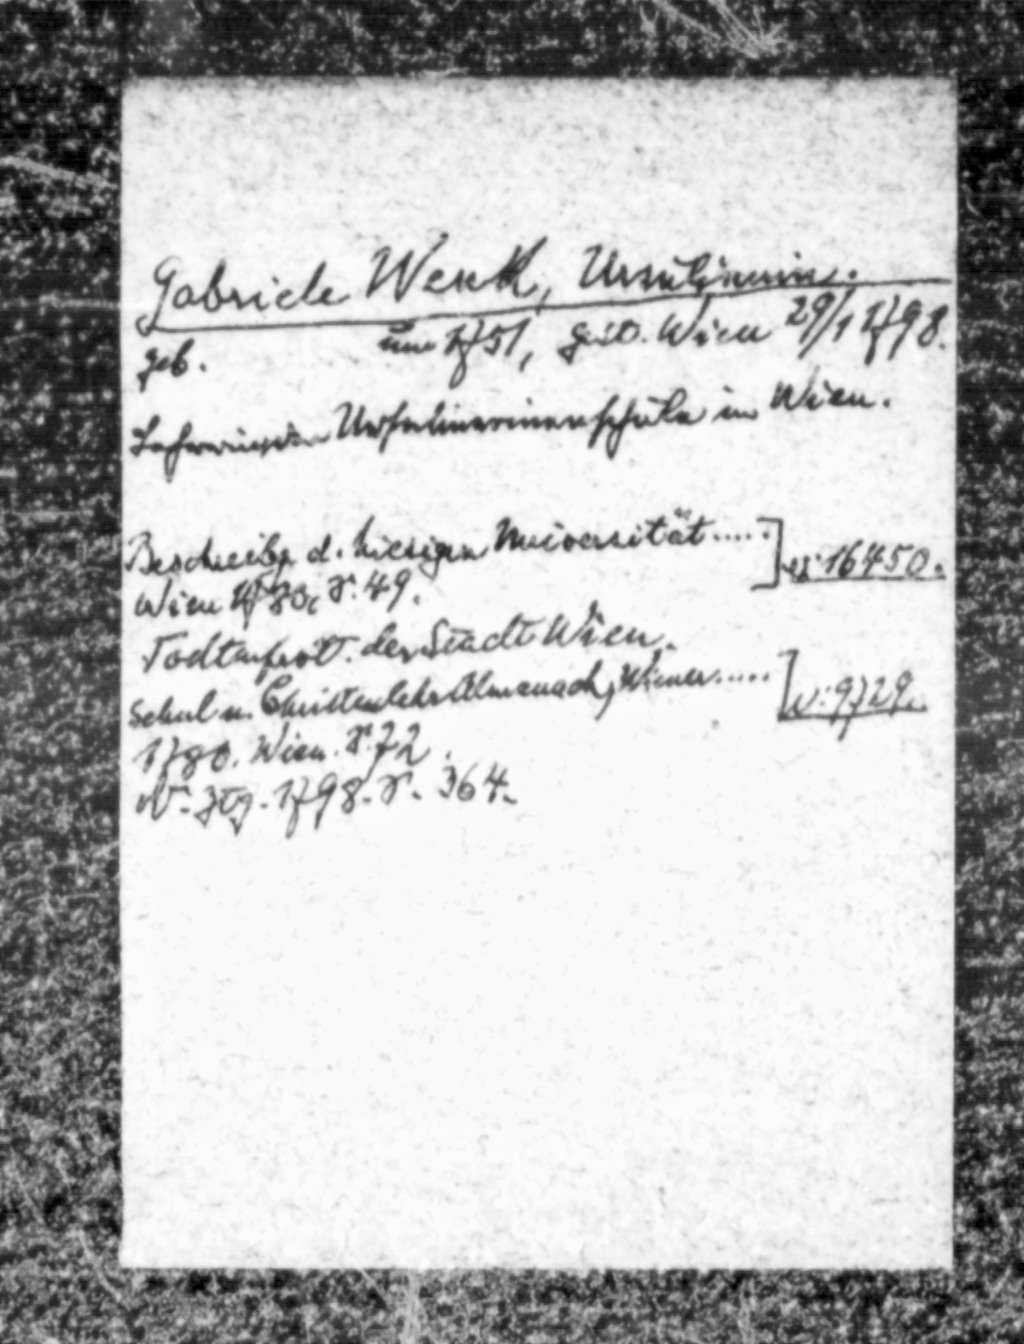 Gabriele Wenk, Ursulinerin.
geb. um 1751, gest. Wien 29/1 1798.
Lehrerin der Ursulinerinnenschule in Wien.
Beschreibg d. hiesigen Universität..... 16450.
Wien 1780, S. 49.
Todtenprot. der Stadt Wien.
Schul u. Christenlehr Almanach, Wiener..... 9729.
1780. Wien. S. 72.
W. Ztg. 1798. S. 364.